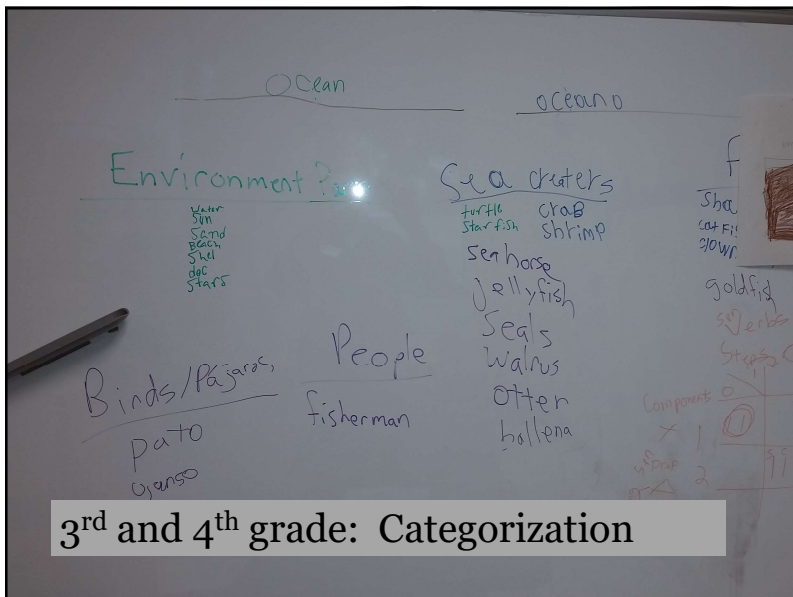 Ocean
oceano
Environment
water
Sun
Sand
Beach
Shel
Stars
Sea creaters
turtle
Starfish
craB
shrimp
sea horse
Jellyfish
Seals
Walrus
Otter
ballena
F
Sha
cat Fi
clown
goldfish
Verbs
Steps
Components
0
1
2
Binds/Pájaros,
pato
People
fisherman
3rd and 4th grade: Categorization